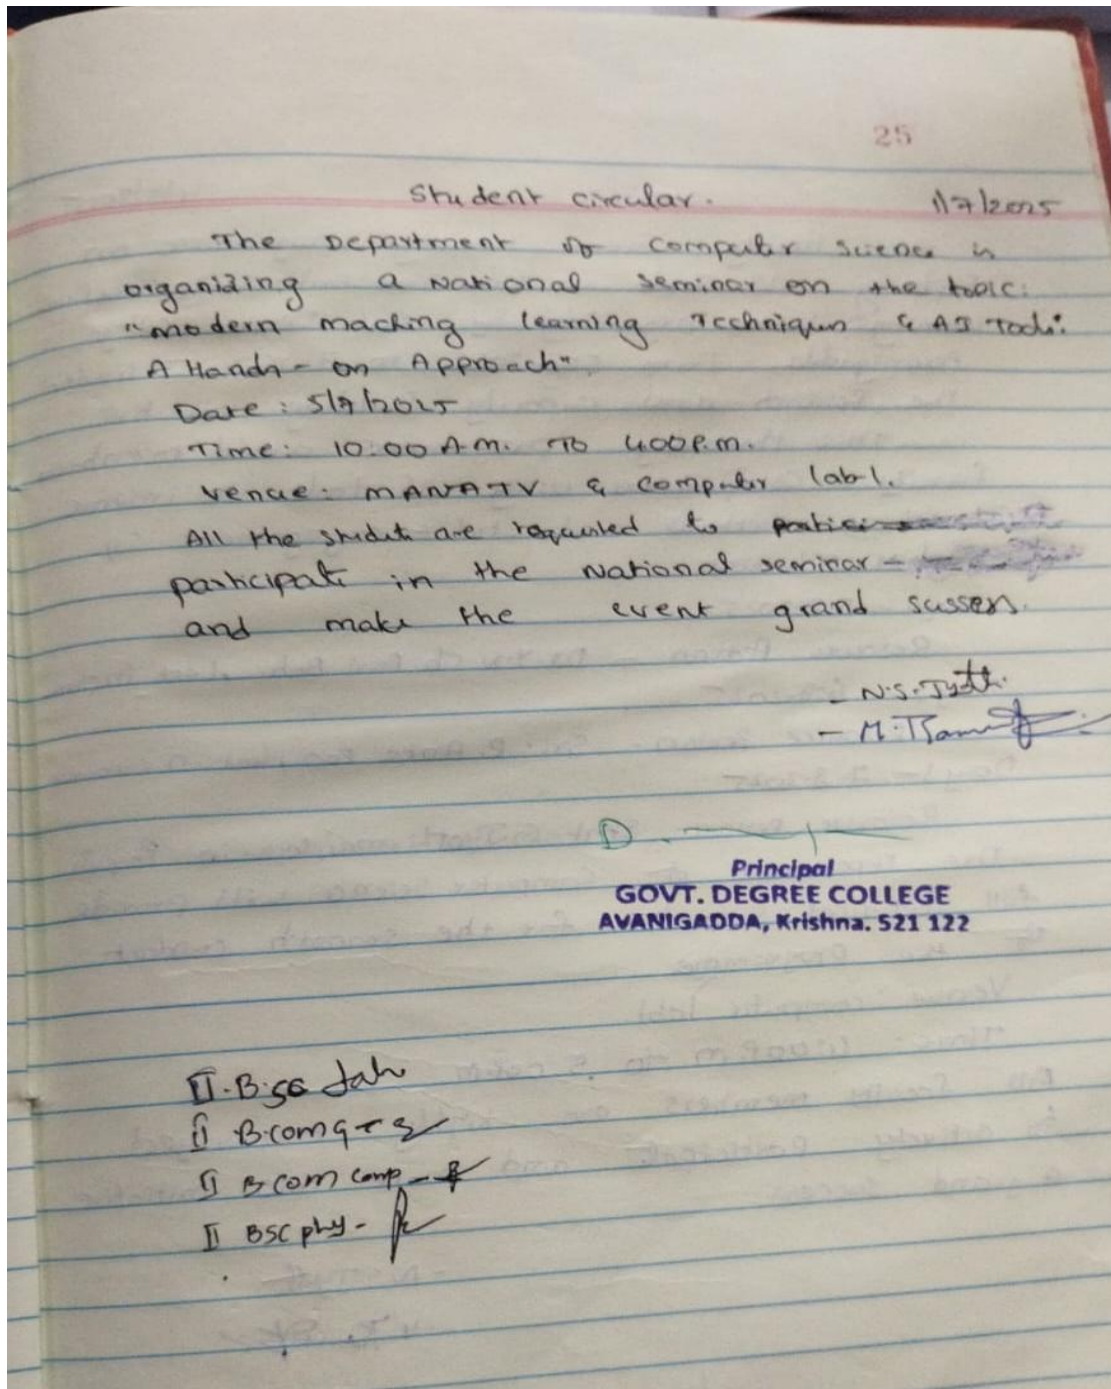 25
Student circular. 1/7/2025
The Department of Computer Science is
organizing a National Seminar on the topic:
"Modern maching learning Techniques & AI Tools:
A Hands-on Approach"
Date: 5/7/2025
Time: 10:00 A.m. To 4:00 P.m.
Venue: MANATV & Computer lab 1.
All the students are requested to
participate in the National seminar -
and make the event grand sussess.
- N.S. Jyothi
- M.
D.
Principal
GOVT. DEGREE COLLEGE
AVANIGADDA, Krishna. 521 122
II. B.sc
II B.com
II B com comp -
II BSC phy -